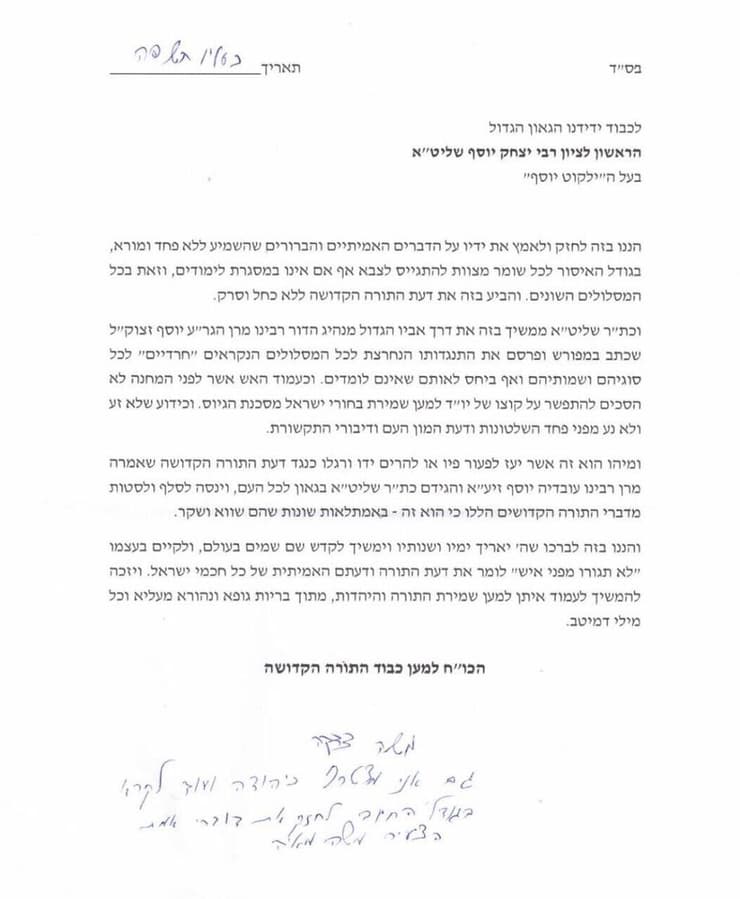 בס״ד
תאריך כסליו תשפה
לכבוד ידידנו הגאון הגדול
הראשון לציון רבי יצחק יוסף שליט״א
בעל ה״ילקוט יוסף״
הננו בזה לחזק ולאמץ את ידיו על הדברים האמיתיים והברורים שהשמיע ללא פחד ומורא,
בגודל האיסור לכל שומר מצוות להתגייס לצבא אף אם אינו במסגרת לימודים, וזאת בכל
המסלולים השונים. והביע בזה את דעת התורה הקדושה ללא כחל וסרק.
וכת״ר שליט״א ממשיך בזה את דרך אביו הגדול מנהיג הדור רבינו מרן הגר״ע יוסף זצוק״ל
שכתב במפורש ופרסם את התנגדותו הנחרצת לכל המסלולים הנקראים ״חרדיים״ לכל
סוגיהם ושמותיהם ואף ביחס לאותם שאינם לומדים. וכעמוד האש אשר לפני המחנה לא
הסכים להתפשר על קוצו של יו״ד למען שמירת בחורי ישראל מסכנת הגיוס. וכידוע שלא זע
ולא נע מפני פחד השלטונות ודעת המון העם ודיבורי התקשורת.
ומיהו הוא זה אשר יעז לפעור פיו או להרים ידו ורגלו כנגד דעת התורה הקדושה שאמרה
מרן רבינו עובדיה יוסף זיע״א והגידם כת״ר שליט״א בגאון לכל העם, וינסה לסלף ולסטות
מדברי התורה הקדושים הללו כי הוא זה - באמתלאות שונות שהם שווא ושקר.
והננו בזה לברכו שה׳ יאריך ימיו ושנותיו וימשיך לקדש שם שמים בעולם, ולקיים בעצמו
״לא תגורו מפני איש״ לומר את דעת התורה ודעתם האמיתית של כל חכמי ישראל. ויזכה
להמשיך לעמוד איתן למען שמירת התורה והיהדות, מתוך בריות גופא ונהורא מעליא וכל
מילי דמיטב.
הכו״ח למען כבוד התורה הקדושה
משה צדקה
גם אני מצטרף כיהודה ועוד לקרא
בגודל החיוב לחזק את דוברי אמת
הצעיר משה מאיה